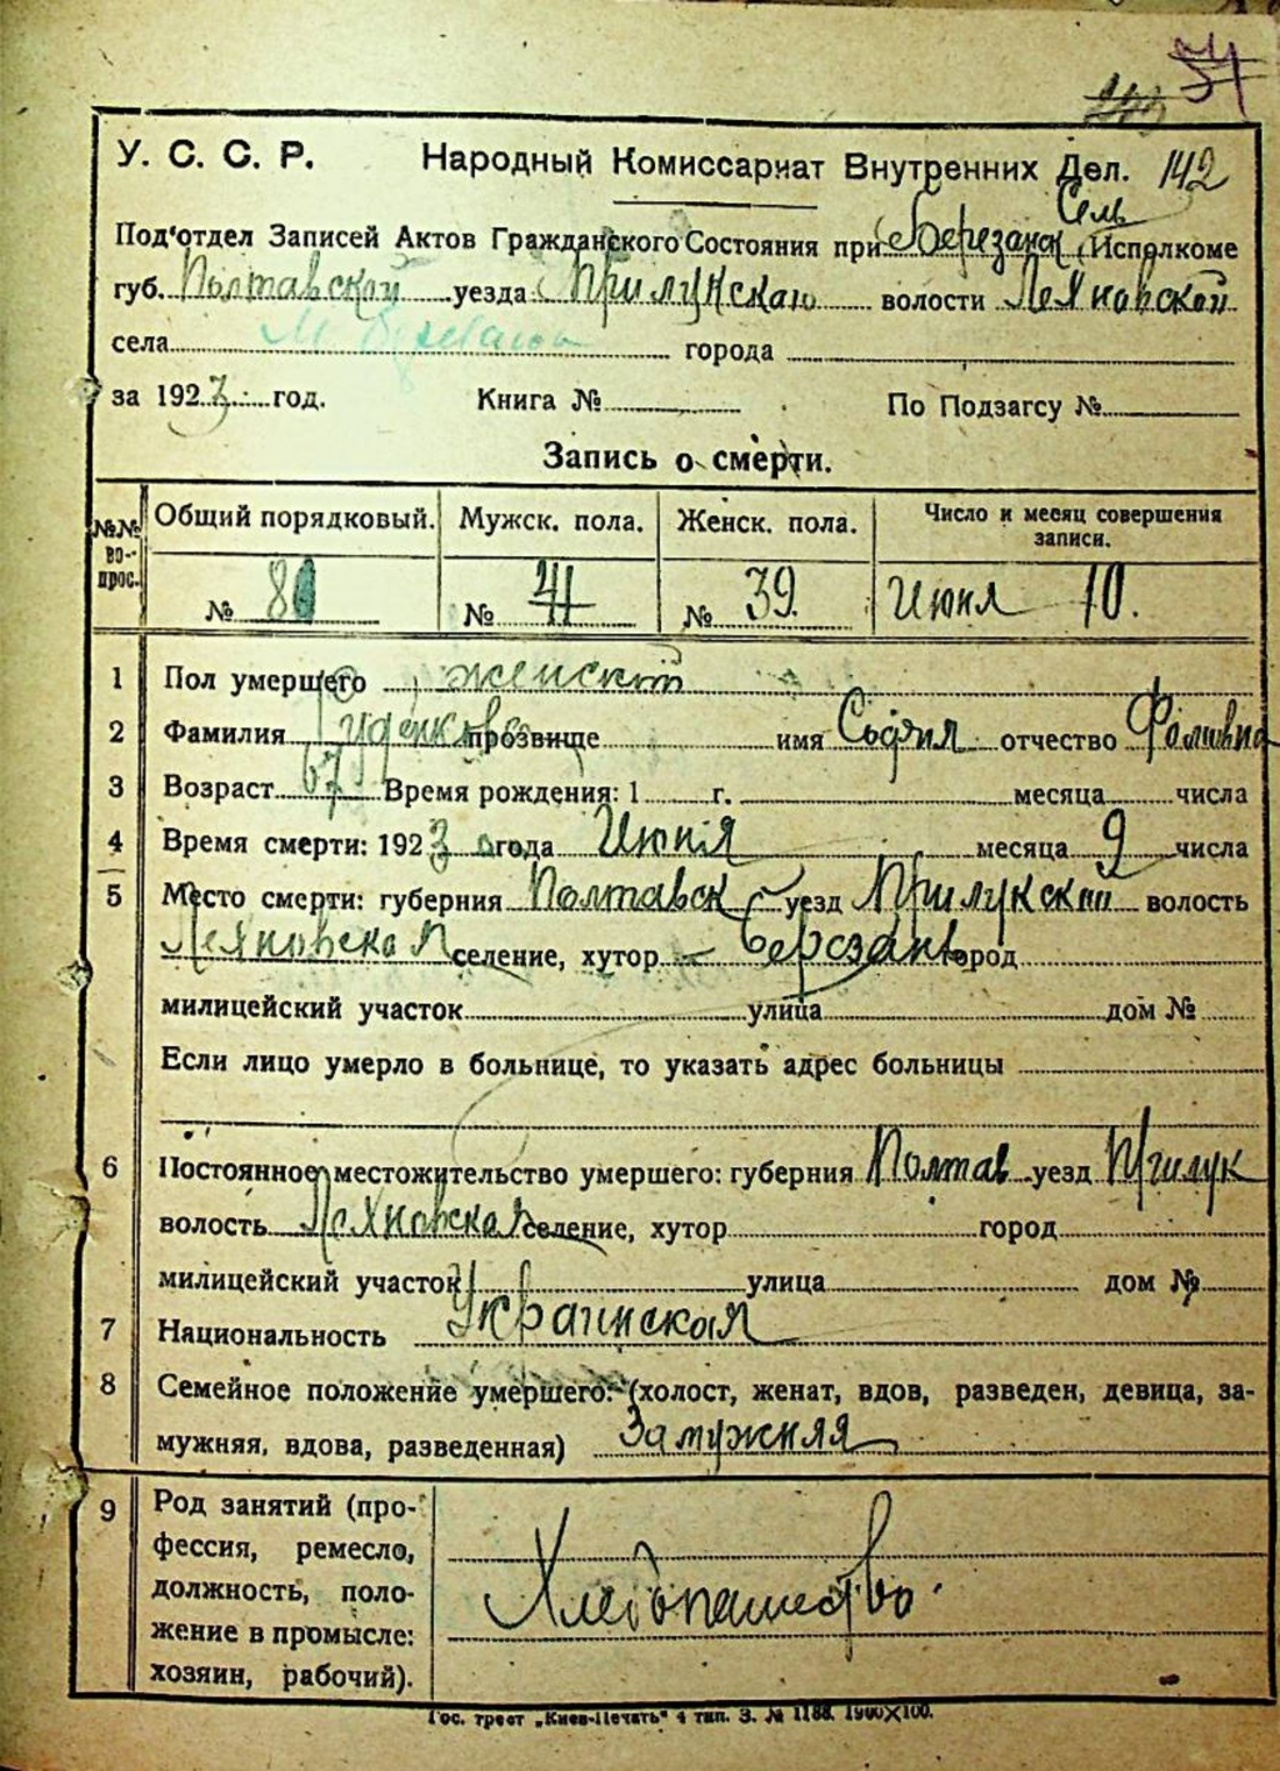 У. С. С. Р. Народный Комиссариат Внутренних Дел. 142
Сель
Под'отдел Записей Актов Гражданского Состояния при Березанск Исполкоме
губ. Полтавской уезда Прилукскаго волости Ляхновской
села города
за 1923 год. Книга № По Подзагсу №
Запись о смерти.
№№ во-прос. Общий порядковый. Мужск. пола. Женск. пола. Число и месяц совершения записи.
№ 80 № 41 № 39. Июня 10.
1 Пол умершего женский
2 Фамилия прозвище имя София отчество
3 Возраст 67 Время рождения: 1 г. месяца числа
4 Время смерти: 1923 года Июня месяца 9 числа
5 Место смерти: губерния Полтавск уезд Прилукский волость
Ляхновская селение, хутор Березань город
милицейский участок улица дом №
Если лицо умерло в больнице, то указать адрес больницы
6 Постоянное местожительство умершего: губерния Полтав уезд Прилук
волость Ляхновская селение, хутор город
милицейский участок улица дом №
7 Национальность Украинская
8 Семейное положение умершего: (холост, женат, вдов, разведен, девица, за-
мужняя, вдова, разведенная) Замужняя
9 Род занятий (про-
фессия, ремесло,
должность, поло-
жение в промысле:
хозяин, рабочий).
Хлебопашество
Гос. трест „Киев-Печать" 4 тип. З. № 1188. 1900×100.